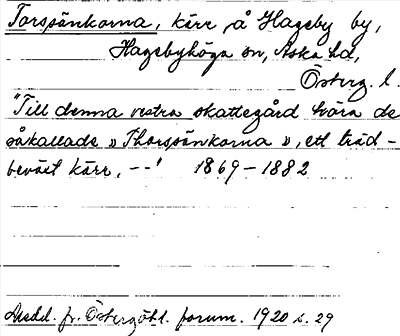 Torssänkorna, kärr, å Hageby by,
Hagebyhöga sn, Aska hd,
Österg. l.
"Till denna vestra skattegård höra de
såkallade » Thorssänkorna », ett träd-
beväxt kärr, - - " 1869-1882
Medd. fr. Östergötl. fornm. 1920 s. 29